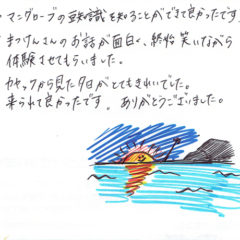 マングローブの知識を知ることができて良かったです。
まっけんさんのお話が面白く、終始笑いながら
体験させてもらいました。
カヤックから見た夕日がとてもきれいでした。
来られて良かったです。ありがとうございました。